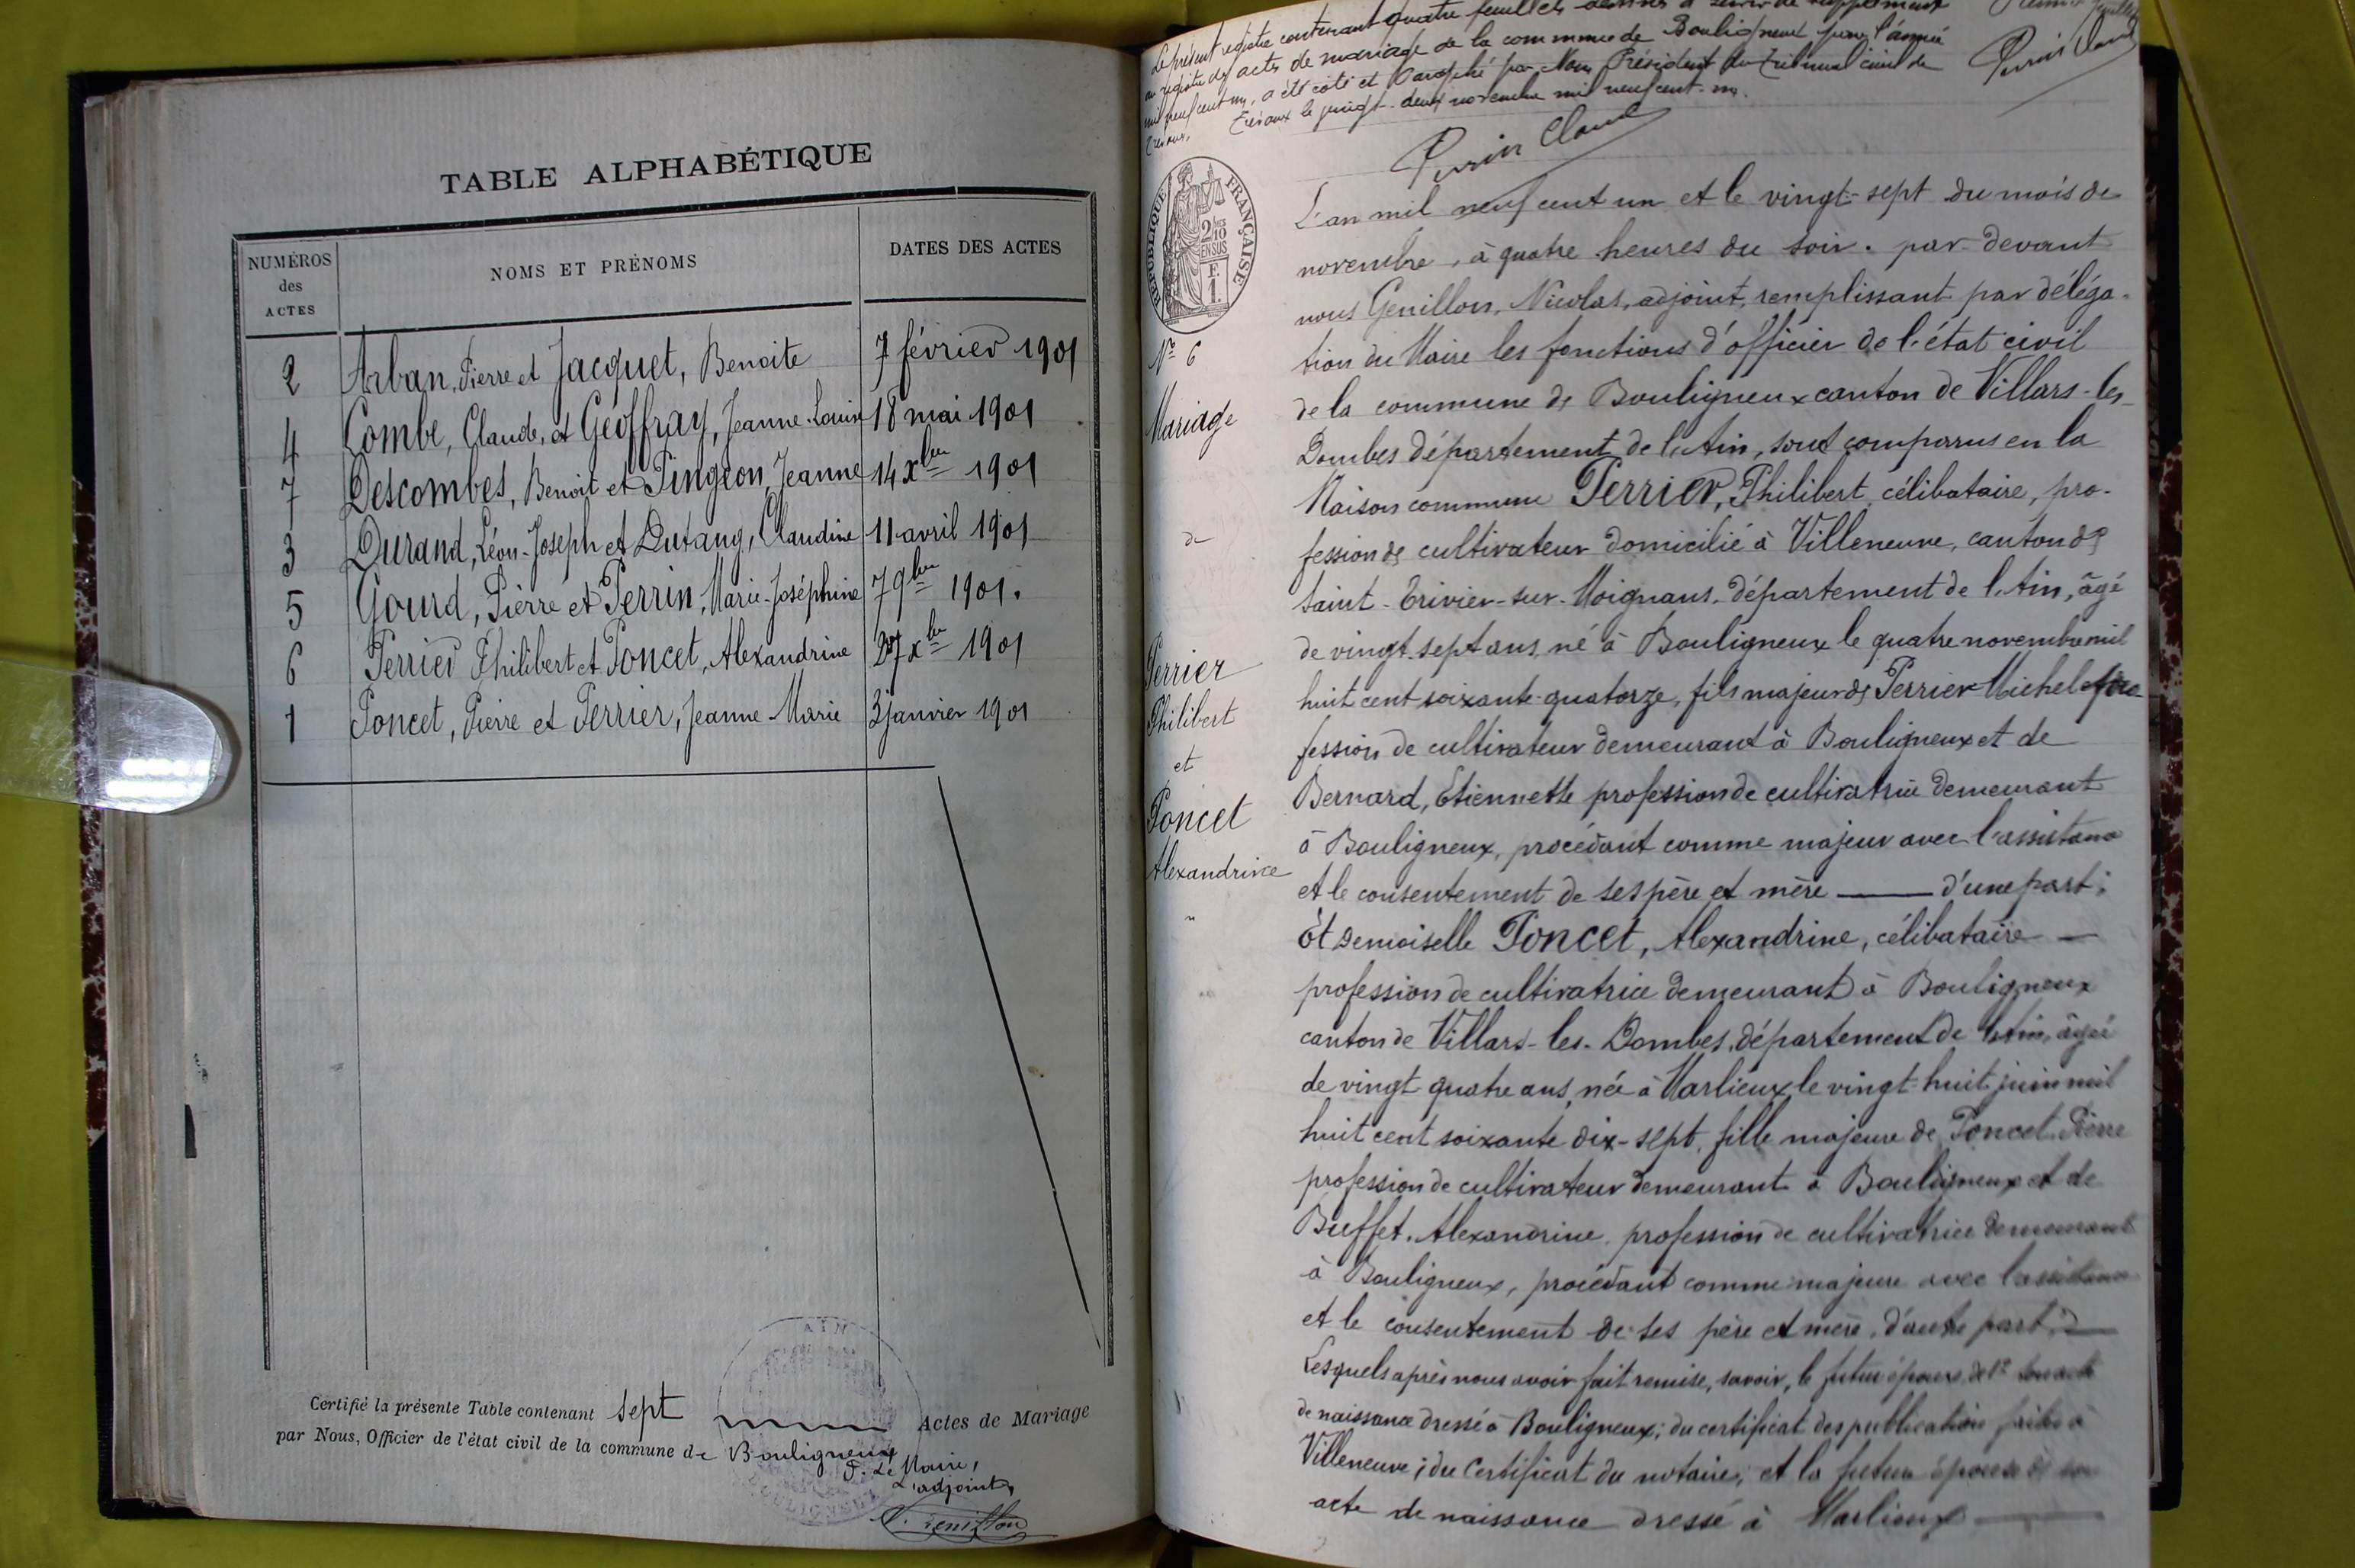 TABLE ALPHABÉTIQUE
NUMÉROS des ACTES
NOMS ET PRÉNOMS
DATES DES ACTES
2 Arban, Pierre et Jacquet, Benoite 7 février 1901
4 Combe, Claude, et Geoffray, Jeanne-Louise 18 mai 1901
7 Descombes, Benoit et Pingeon, Jeanne 14 xbre 1901
3 Durand, Léon-Joseph et Dutang, Claudine 11 avril 1901
5 Gourd, Pierre et Perrin, Marie-Joséphine 7 9bre 1901.
6 Perrier Philibert et Poncet, Alexandrine 27 xbre 1901
1 Poncet, Pierre et Perrier, Jeanne-Marie 3 janvier 1901
Certifié la présente Table contenant sept Actes de Mariage
par Nous, Officier de l'état civil de la commune de Bouligneux
P. Le Maire,
L'adjoint,
Genillon
AIN
Le présent registre contenant quatre feuillets destinés à servir de supplément
au registre des actes de mariage de la commune de Bouligneux pour l'année
mil neuf cent un, a été coté et paraphé par Nous Président du Tribunal civil de
Trévoux. Trévoux le vingt-deux novembre mil neuf cent-un.
RÉPUBLIQUE FRANÇAISE
2/10 EN SUS
F. 1.
L'an mil neuf cent un et le vingt-sept du mois de
novembre, à quatre heures du soir. par devant
nous Genillon, Nicolas, adjoint, remplissant par déléga-
tion du Maire les fonctions d'officier de l'état civil
de la commune de Bouligneux canton de Villars-les-
Dombes département de l'Ain, sont comparus en la
Maison commune Perrier, Philibert, célibataire, pro-
fession de cultivateur domicilié à Villeneuve, canton de
Saint-Trivier-sur-Moignans, département de l'Ain, âgé
de vingt-sept ans, né à Bouligneux le quatre novembre mil
huit cent soixante-quatorze, fils majeur de Perrier Michel pro-
fession de cultivateur demeurant à Bouligneux et de
Bernard, Etiennette profession de cultivatrice demeurant
à Bouligneux, procédant comme majeur avec l'assistance
et le consentement de ses père et mère d'une part;
Et Demoiselle Poncet, Alexandrine, célibataire
profession de cultivatrice demeurant à Bouligneux
canton de Villars-les-Dombes, département de l'Ain, âgée
de vingt quatre ans, née à Marlieux le vingt-huit juin mil
huit cent soixante dix-sept, fille majeure de Poncet Pierre
profession de cultivateur demeurant à Bouligneux et de
Buffet, Alexandrine, profession de cultivatrice demeurant
à Bouligneux, procédant comme majeure avec l'assistance
et le consentement de ses père et mère, d'autre part;
Lesquels après nous avoir fait remise, savoir, le futur époux, de 1° son acte
de naissance dressé à Bouligneux; du certificat des publications faites à
Villeneuve; du Certificat du notaire; et la future épouse de son
acte de naissance dressé à Marlieux
N° 6
Mariage
de
Perrier
Philibert
et
Poncet
Alexandrine